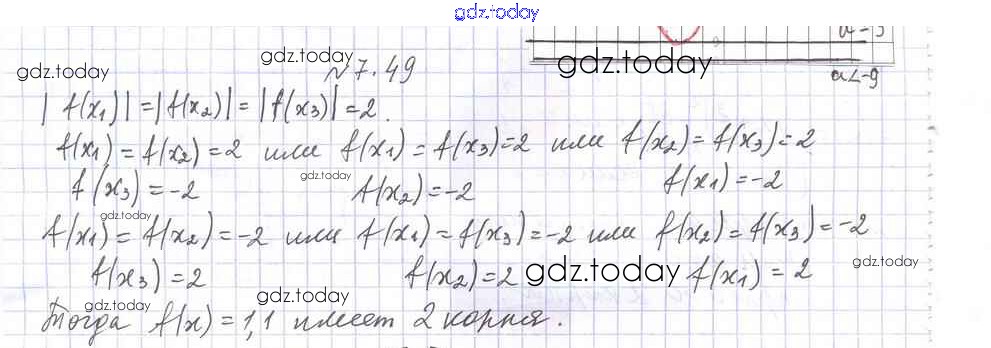 gdz.today
a = -9
gdz.today
gdz.today
gdz.today
a < -9
№ 7.49
|f(x₁)| = |f(x₂)| = |f(x₃)| = 2.
f(x₁) = f(x₂) = 2 или f(x₁) = f(x₃) = 2 или f(x₂) = f(x₃) = 2
gdz.today
f(x₃) = -2 f(x₂) = -2 f(x₁) = -2
gdz.today
f(x₁) = f(x₂) = -2 или f(x₁) = f(x₃) = -2 или f(x₂) = f(x₃) = -2
gdz.today
gdz.today
f(x₃) = 2 f(x₂) = 2 f(x₁) = 2
gdz.today
gdz.today
Тогда f(x) = 1,1 имеет 2 корня.